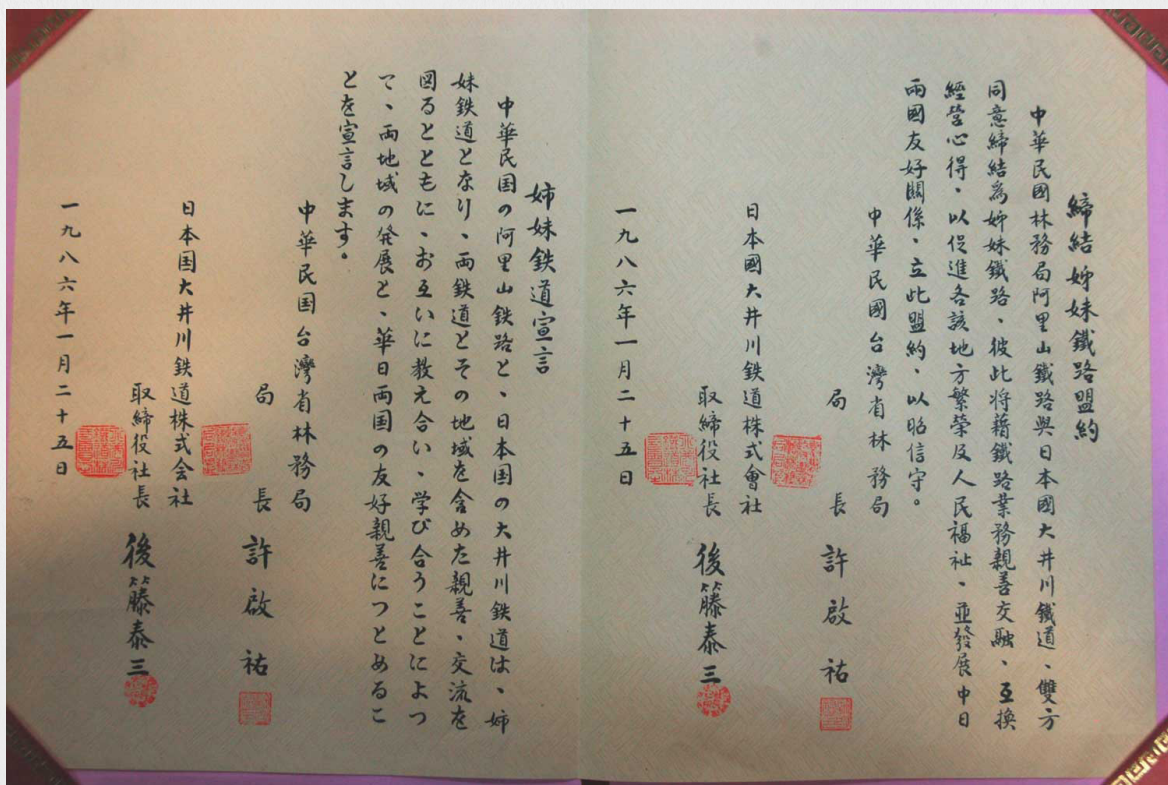 締結姉妹鐵路盟約
中華民國林務局阿里山鐵路與日本國大井川鐵道、雙方
同意締結為姉妹鐵路、彼此将藉鐵路業務親善交融、互換
經營心得、以促進各該地方繁榮及人民福祉、並發展中日
兩國友好關係、立此盟約、以昭信守。
中華民國台灣省林務局
局長 許啟祐
日本國大井川鉄道株式會社
取締役社長 後籐泰三
一九八六年一月二十五日
姉妹鉄道宣言
中華民国の阿里山鉄路と、日本国の大井川鉄道は、姉
妹鉄道となり、両鉄道とその地域を含めた親善、交流を
図るとともに、お互いに教え合い、学び合うことによっ
て、両地域の発展と、華日両国の友好親善につとめるこ
とを宣言します。
中華民国台灣省林務局
局長 許啟祐
日本国大井川鉄道株式会社
取締役社長 後籐泰三
一九八六年一月二十五日